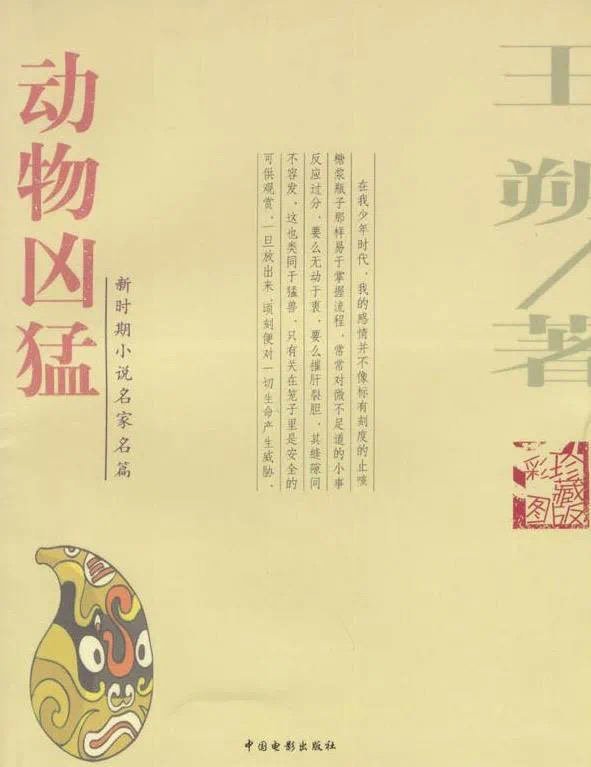 动物凶猛
新时期小说名家名篇
王朔/著
珍藏版
彩图
在我少年时代，我的感情并不像标有刻度的止咳
糖浆瓶子那样易于掌握流程，常常对微不足道的小事
反应过分，要么无动于衷，要么摧肝裂胆，其缝隙间
不容发，这也类同于猛兽，只有关在笼子里是安全的
可供观赏，一旦放出来，顷刻便对一切生命产生威胁。
中国电影出版社